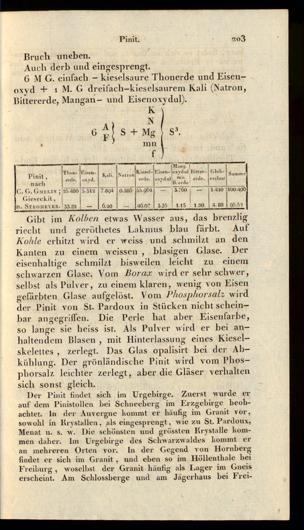 Pinit. 203
Bruch uneben.
Auch derb und eingesprengt.
6 M G. einfach – kieselsaure Thonerde und Eisen-
oxyd + 1 M. G dreifach-kieselsaurem Kali (Natron,
Bittererde, Mangan- und Eisenoxydul).
K
N
6 A F } S + Mg } S³.
mn
f
Pinit, nach Thon-erde. Eisen-oxyd. Kali. Natron Kiesel-erde. Eisen-oxydul Bitter-erde. Glüh-verlust Summe
C. G. GMELIN; 25.480 5.512 7.894 0.386 55.964 — 3.760 — 1.410
Gieseckit,
n. STROMEYER.
Gibt im Kolben etwas Wasser aus, das brenzlig
riecht und geröthetes Lakmus blau färbt. Auf
Kohle erhitzt wird er weiss und schmilzt an den
Kanten zu einem weissen, blasigen Glase. Der
eisenhaltige schmilzt bisweilen leicht zu einem
schwarzen Glase. Vom Borax wird er sehr schwer,
selbst als Pulver, zu einem klaren, wenig von Eisen
gefärbten Glase aufgelöst. Vom Phosphorsalz wird
der Pinit von St. Pardoux in Stücken nicht schein-
bar angegriffen. Die Perle hat aber Eisenfarbe,
so lange sie heiss ist. Als Pulver wird er bei an-
haltendem Blasen, mit Hinterlassung eines Kiesel-
skelettes, zerlegt. Das Glas opalisirt bei der Ab-
kühlung. Der grönländische Pinit wird vom Phos-
phorsalz leichter zerlegt, aber die Gläser verhalten
sich sonst gleich.
Der Pinit findet sich im Urgebirge. Zuerst wurde er
auf dem Pinistollen bei Schneeberg im Erzgebirge beob-
achtet. In der Auvergne kommt er häufig im Granit vor,
sowohl in Krystallen, als eingesprengt, wie zu St. Pardoux,
Menat u. s. w. Die schönsten und grössten Krystalle kom-
men daher. Im Urgebirge des Schwarzwaldes kommt er
an mehreren Orten vor. In der Gegend von Hornberg
findet er sich im Granit, und eben so im Höllenthale bei
Freiburg, woselbst der Granit häufig als Lager im Gneis
erscheint. Am Schlossberge und am Jägerhaus bei Frei-